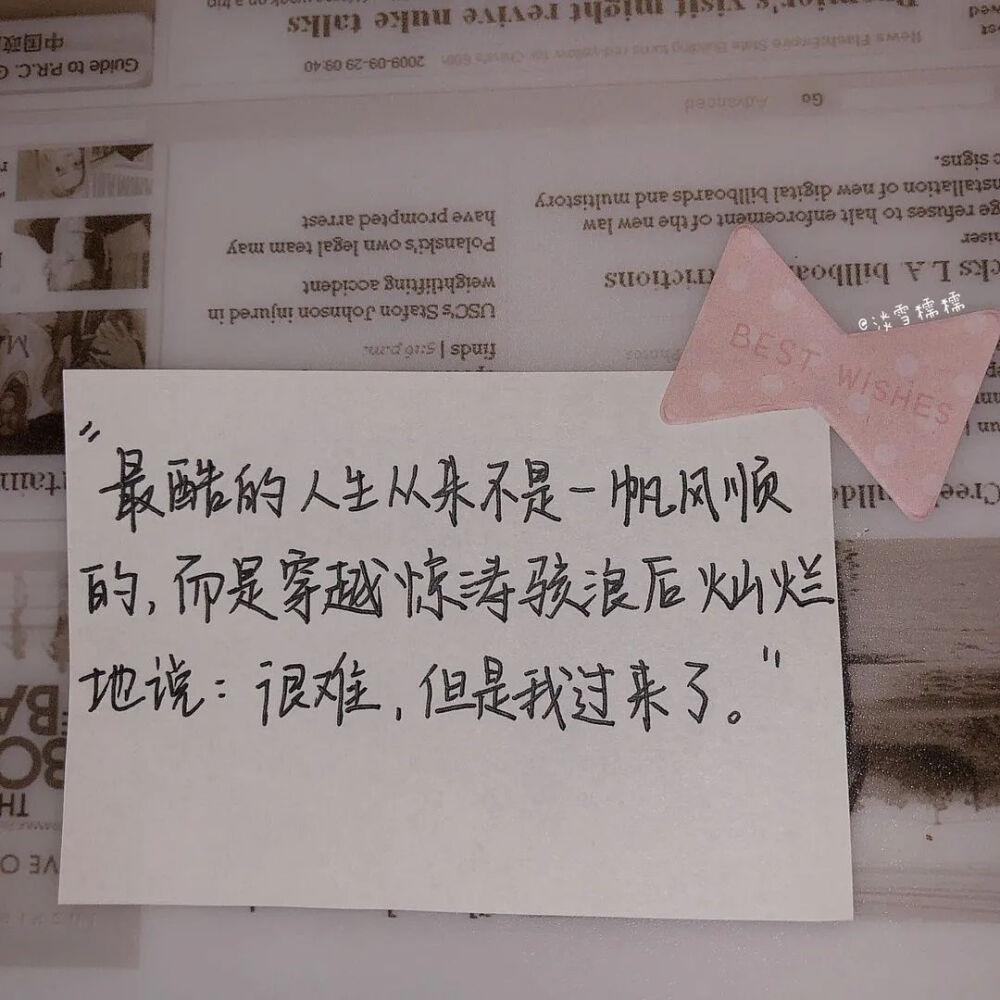 Premier's visit might revive nuke talks
2009-09-29 09:40
Guide to P.R.C. G
中国政府
Go
Advanced
c signs.
nstallation of new digital billboards and multistory
ge refuses to halt enforcement of the new law
cks LA billboa
rictions
have prompted arrest
Polanski's own legal team may
weightlifting accident
USC's Stafon Johnson injured in
finds | 5:16 p.m.
@淡雪糯糯
BEST WISHES
"最酷的人生从来不是一帆风顺
的,而是穿越惊涛骇浪后灿烂
地说:很难,但是我过来了。"